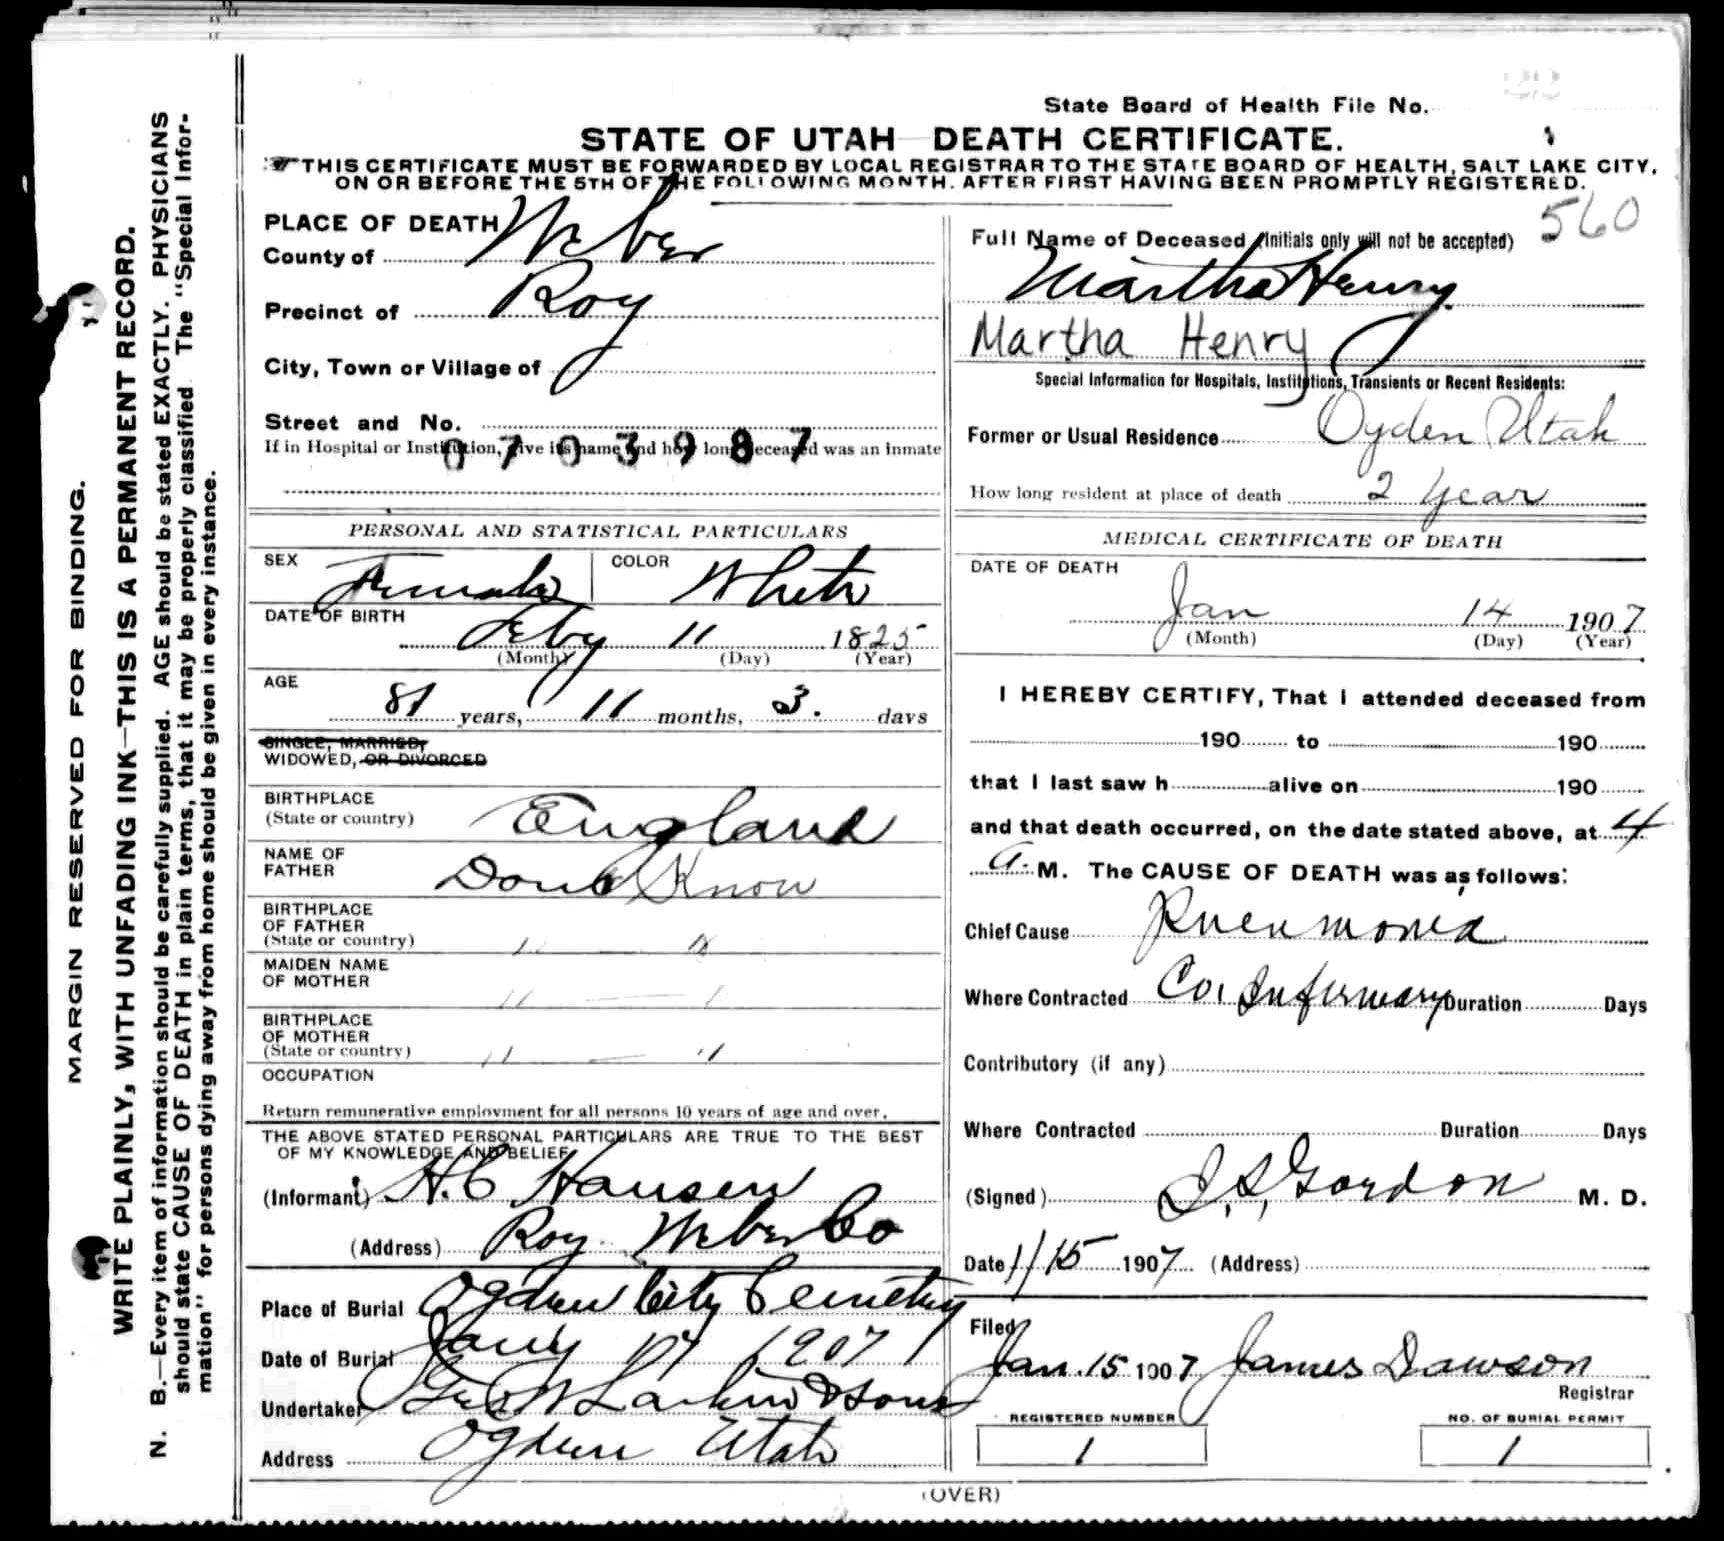 State Board of Health File No. 22
STATE OF UTAH—DEATH CERTIFICATE.
THIS CERTIFICATE MUST BE FORWARDED BY LOCAL REGISTRAR TO THE STATE BOARD OF HEALTH, SALT LAKE CITY,
ON OR BEFORE THE 5TH OF THE FOLLOWING MONTH. AFTER FIRST HAVING BEEN PROMPTLY REGISTERED.
MARGIN RESERVED FOR BINDING.
WRITE PLAINLY, WITH UNFADING INK—THIS IS A PERMANENT RECORD.
N. B.—Every item of information should be carefully supplied. AGE should be stated EXACTLY. PHYSICIANS
should state CAUSE OF DEATH in plain terms, that it may be properly classified. The "Special Infor-
mation" for persons dying away from home should be given in every instance.
PLACE OF DEATH
County of Weber
Precinct of Roy
City, Town or Village of
Street and No.
0703987
If in Hospital or Institution, give its name and how long deceased was an inmate
PERSONAL AND STATISTICAL PARTICULARS
SEX Female COLOR White
DATE OF BIRTH
Feby 11 1825
(Month) (Day) (Year)
AGE
81 years, 11 months, 3. days
SINGLE, MARRIED,
WIDOWED, OR DIVORCED
BIRTHPLACE
(State or country) England
NAME OF
FATHER Dont Know
BIRTHPLACE
OF FATHER
(State or country) " "
MAIDEN NAME
OF MOTHER " — "
BIRTHPLACE
OF MOTHER
(State or country) " — "
OCCUPATION
Return remunerative employment for all persons 10 years of age and over.
THE ABOVE STATED PERSONAL PARTICULARS ARE TRUE TO THE BEST
OF MY KNOWLEDGE AND BELIEF
(Informant) H.C Hansen
(Address) Roy Weber Co
Place of Burial Ogden City Cemetery
Date of Burial Jany 17 1907
Undertaker Geo W Larkin & Sons
Address Ogden Utah
560
Full Name of Deceased (Initials only will not be accepted)
Martha Henry
Martha Henry
Special Information for Hospitals, Institutions, Transients or Recent Residents:
Former or Usual Residence Ogden Utah
How long resident at place of death 2 Year
MEDICAL CERTIFICATE OF DEATH
DATE OF DEATH
Jan 14 1907
(Month) (Day) (Year)
I HEREBY CERTIFY, That I attended deceased from
190 to 190
that I last saw h alive on 190
and that death occurred, on the date stated above, at 4
a. M. The CAUSE OF DEATH was as follows:
Chief Cause Pneumonia
Where Contracted Co. Infirmary Duration Days
Contributory (if any)
Where Contracted Duration Days
(Signed) Gordon M. D.
Date 1/15 1907 (Address)
Filed
Jan. 15 1907 James Dawson
Registrar
REGISTERED NUMBER
1
NO. OF BURIAL PERMIT
1
(OVER)